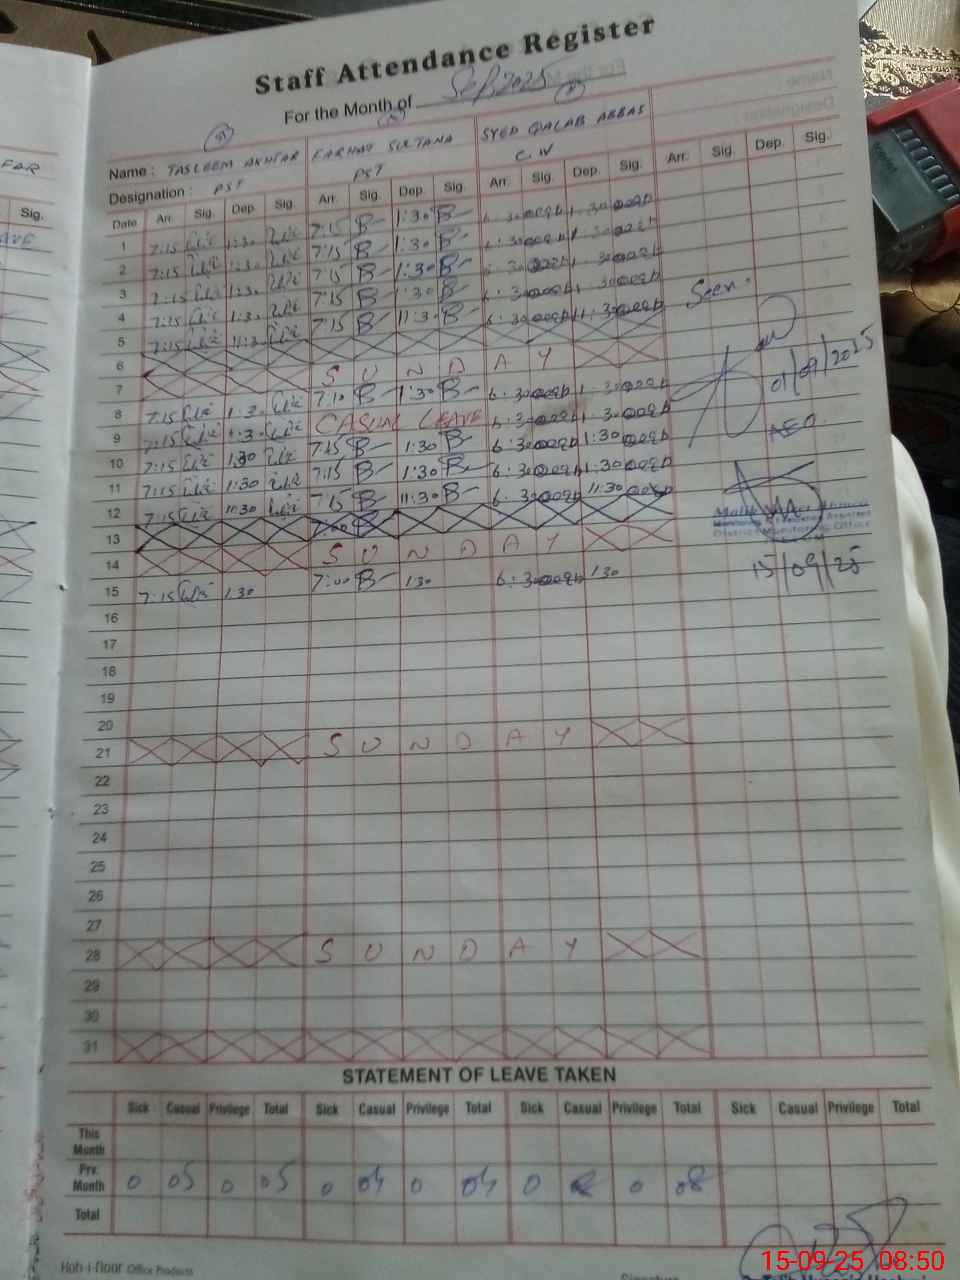 Staff Attendance Register
For the Month of Sep 2025
Name : TASLEEM AKHTAR FARHAT SULTANA SYED QALAB ABBAS
Designation : PST PST C.W
Sig. Date Arr. Sig. Dep. Sig. Arr. Sig. Dep. Sig. Arr. Sig. Dep. Sig. Arr. Sig. Dep. Sig.
1 7:15 1:30 7:15 B 1:30 B 6:30 1:30
2 7:15 1:30 7:15 B 1:30 B 6:30 1:30
3 7:15 1:30 7:15 B 1:30 B 6:30 1:30
4 7:15 1:30 7:15 B 1:30 B 6:30 1:30
5 7:15 11:30 7:15 B 11:30 B 6:30 11:30
Seen.
6
7 S U N D A Y
01/09/2025
8 7:15 1:30 7:10 B 1:30 B 6:30 1:30
9 7:15 1:30 CASUAL LEAVE 6:30 1:30
AEO.
10 7:15 1:30 7:15 B 1:30 B 6:30 1:30
11 7:15 1:30 7:15 B 1:30 B 6:30 1:30
12 7:15 11:30 7:15 B 11:30 B 6:30 11:30
Monitoring & Evaluation Assistant
District Monitoring Office
13 7:00
14 S U N D A Y
15/09/25
15 7:15 1:30 7:00 B 1:30 6:30 1:30
16
17
18
19
20
21 S U N D A Y
22
23
24
25
26
27
28 S U N D A Y
29
30
31
STATEMENT OF LEAVE TAKEN
Sick Casual Privilege Total Sick Casual Privilege Total Sick Casual Privilege Total Sick Casual Privilege Total
This
Month
Prv.
Month 0 05 0 05 0 04 0 04 0 0 08
Total
Koh-i-noor Office Products
Signature
15-09-25 08:50